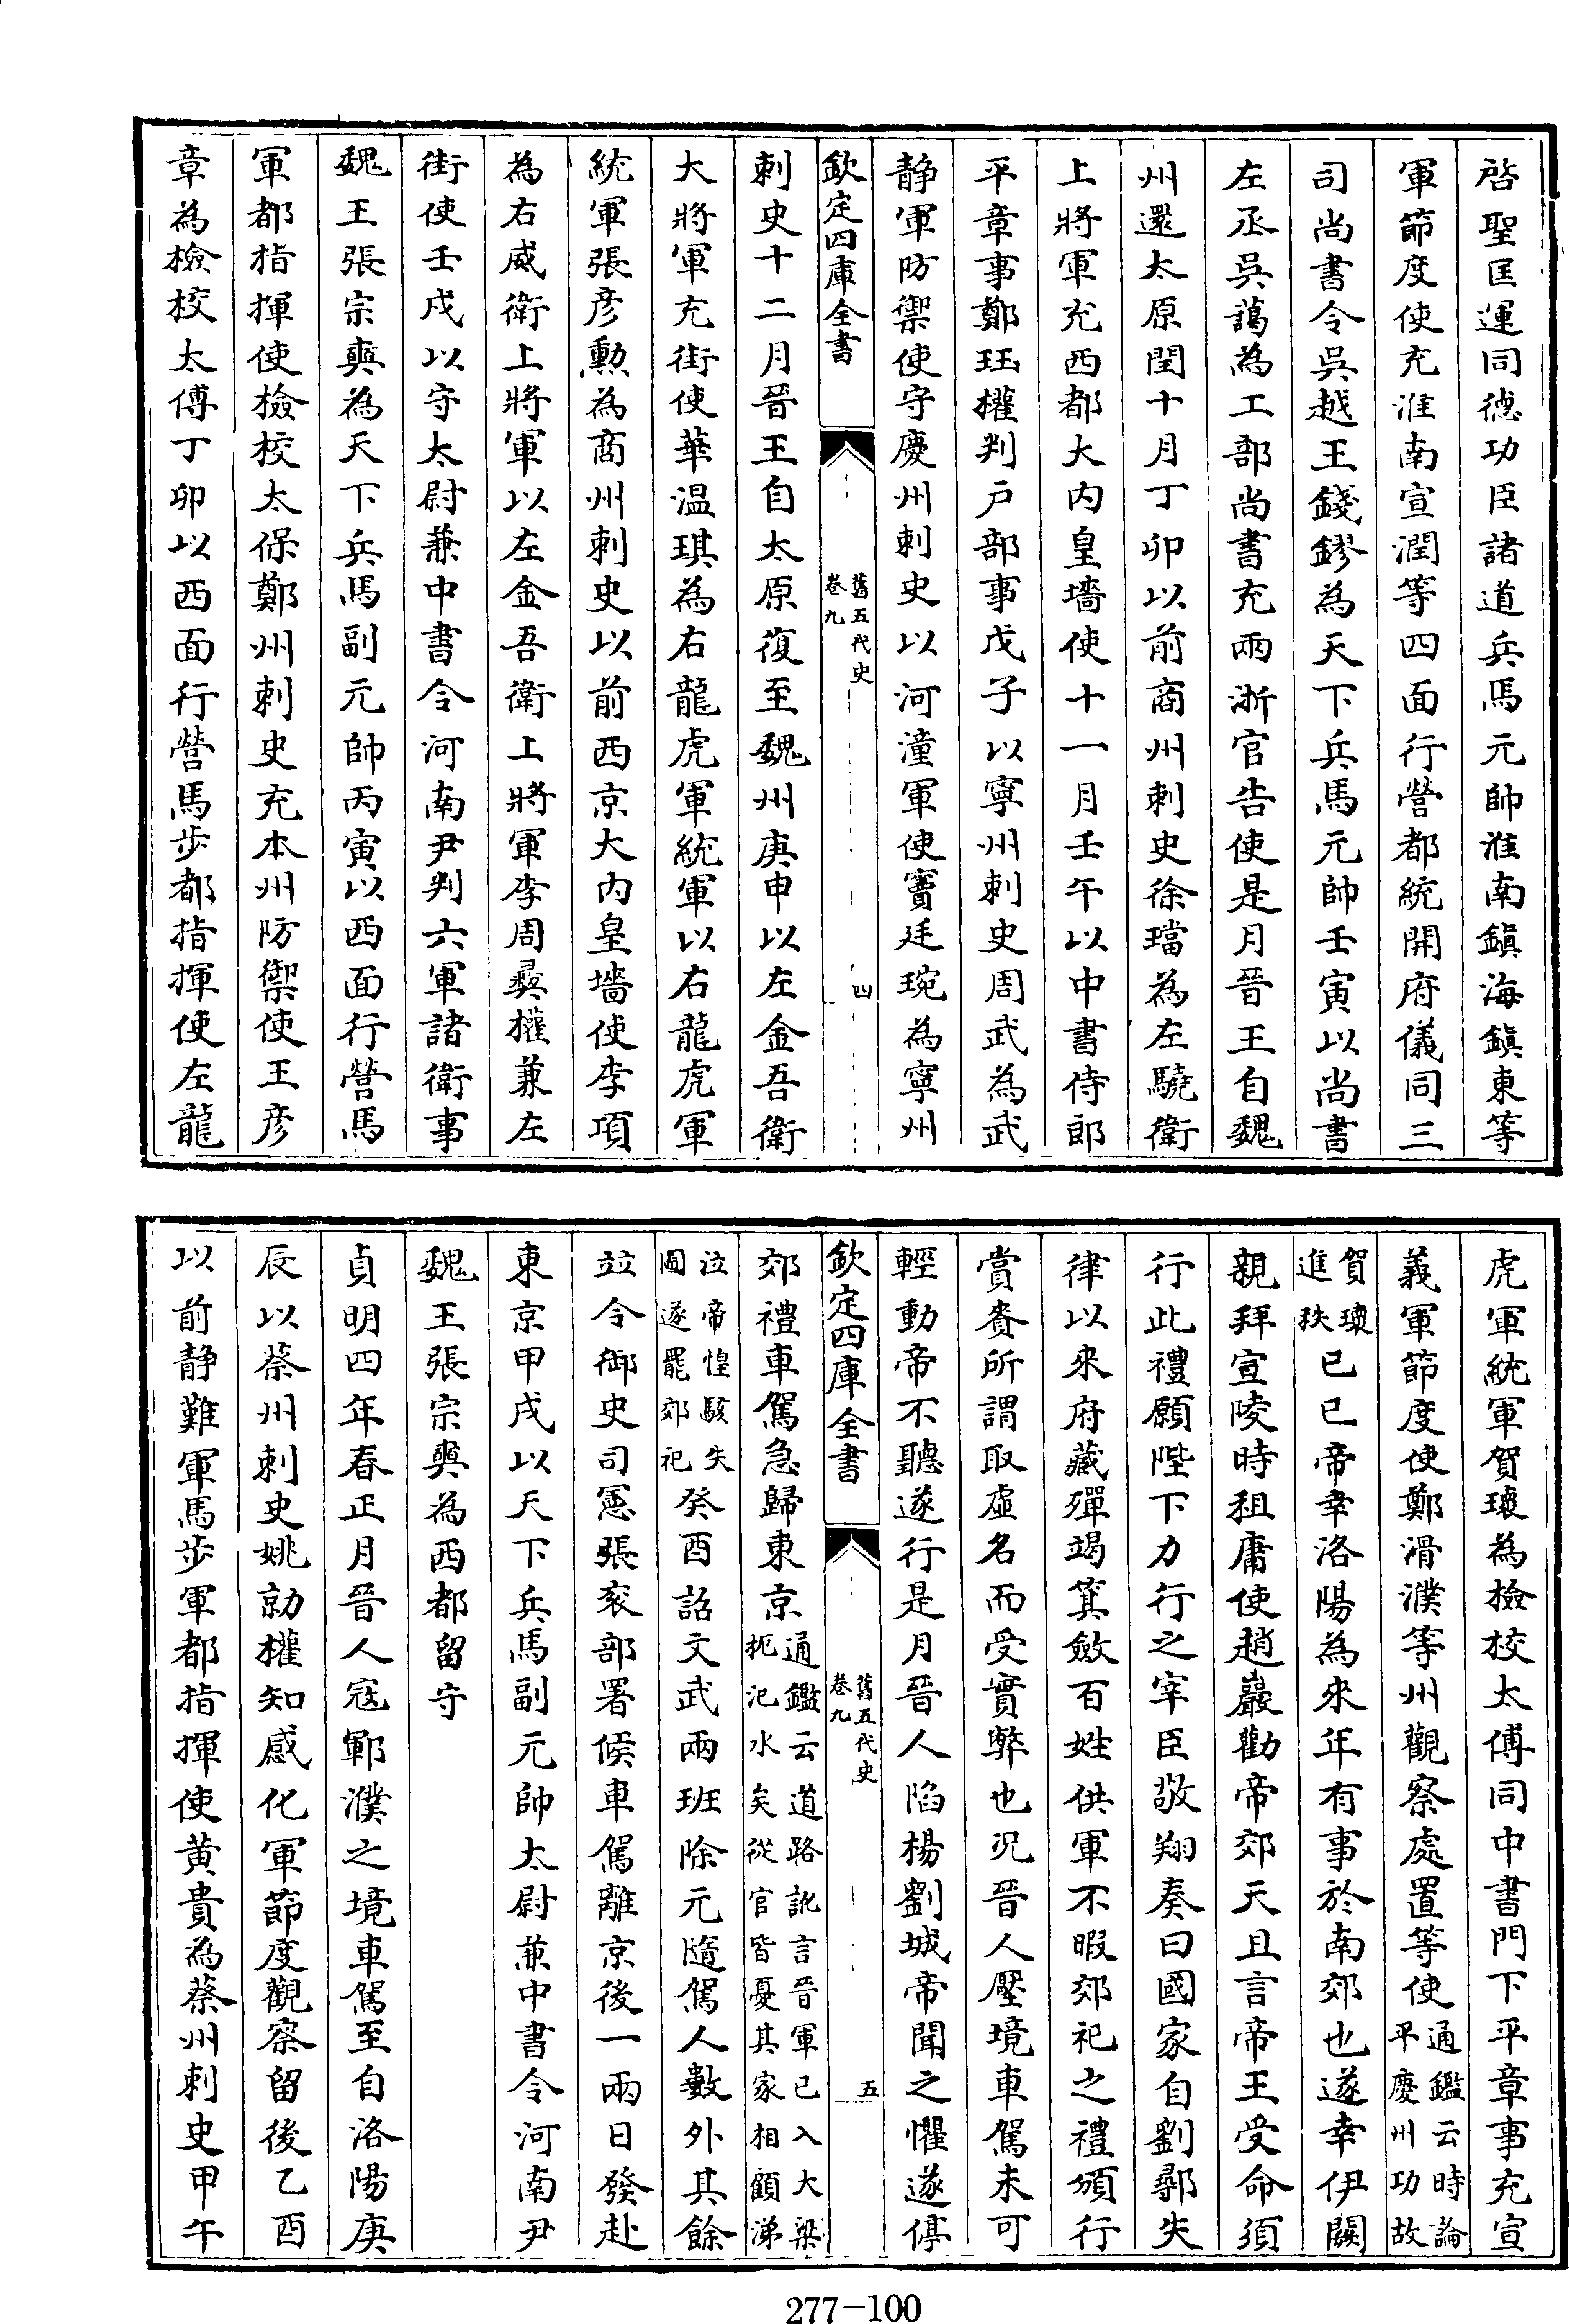 啓聖匡運同德功臣諸道兵馬元帥淮南鎮海鎮東等
軍節度使充淮南宣潤等四面行營都統開府儀同三
司尚書令吳越王錢鏐為天下兵馬元帥壬寅以尚書
左丞吳藹為工部尚書充兩浙官告使是月晉王自魏
州還太原閏十月丁卯以前商州刺史徐璫為左驍衛
上將軍充西都大內皇墻使十一月壬午以中書侍郎
平章事鄭珏權判戶部事戊子以寧州刺史周武為武
靜軍防禦使守慶州刺史以河潼軍使竇廷琬為寧州
欽定四庫全書
舊五代史
卷九
四
刺史十二月晉王自太原復至魏州庚申以左金吾衛
大將軍充街使華溫琪為右龍虎軍統軍以右龍虎軍
統軍張彥勳為商州刺史以前西京大內皇墻使李項
為右威衛上將軍以左金吾衛上將軍李周彞權兼左
街使壬戌以守太尉兼中書令河南尹判六軍諸衛事
魏王張宗奭為天下兵馬副元帥丙寅以西面行營馬
軍都指揮使檢校太保鄭州刺史充本州防禦使王彥
章為檢校太傅丁卯以西面行營馬步都指揮使左龍
虎軍統軍賀瓌為檢校太傅同中書門下平章事充宣
義軍節度使鄭滑濮等州觀察處置等使通鑑云時論
平慶州功故
賀瓌
進秩已巳帝幸洛陽為來年有事於南郊也遂幸伊闕
親拜宣陵時租庸使趙巖勸帝郊天且言帝王受命須
行此禮願陛下力行之宰臣敬翔奏曰國家自劉鄩失
律以來府藏殫竭箕斂百姓供軍不暇郊祀之禮頒行
賞賚所謂取虛名而受實弊也況晉人壓境車駕未可
輕動帝不聽遂行是月晉人陷楊劉城帝聞之懼遂停
欽定四庫全書
舊五代史
卷九
五
郊禮車駕急歸東京通鑑云道路訛言晉軍已入大梁
扼汜水矣從官皆憂其家相顧涕
泣帝惶駭失
圖遂罷郊祀癸酉詔文武兩班除元隨駕人數外其餘
竝令御史司憲張袞部署候車駕離京後一兩日發赴
東京甲戌以天下兵馬副元帥太尉兼中書令河南尹
魏王張宗奭為西都留守
貞明四年春正月晉人寇鄆濮之境車駕至自洛陽庚
辰以蔡州刺史姚勍權知感化軍節度觀察留後乙酉
以前靜難軍馬步軍都指揮使黃貴為蔡州刺史甲午
277-100